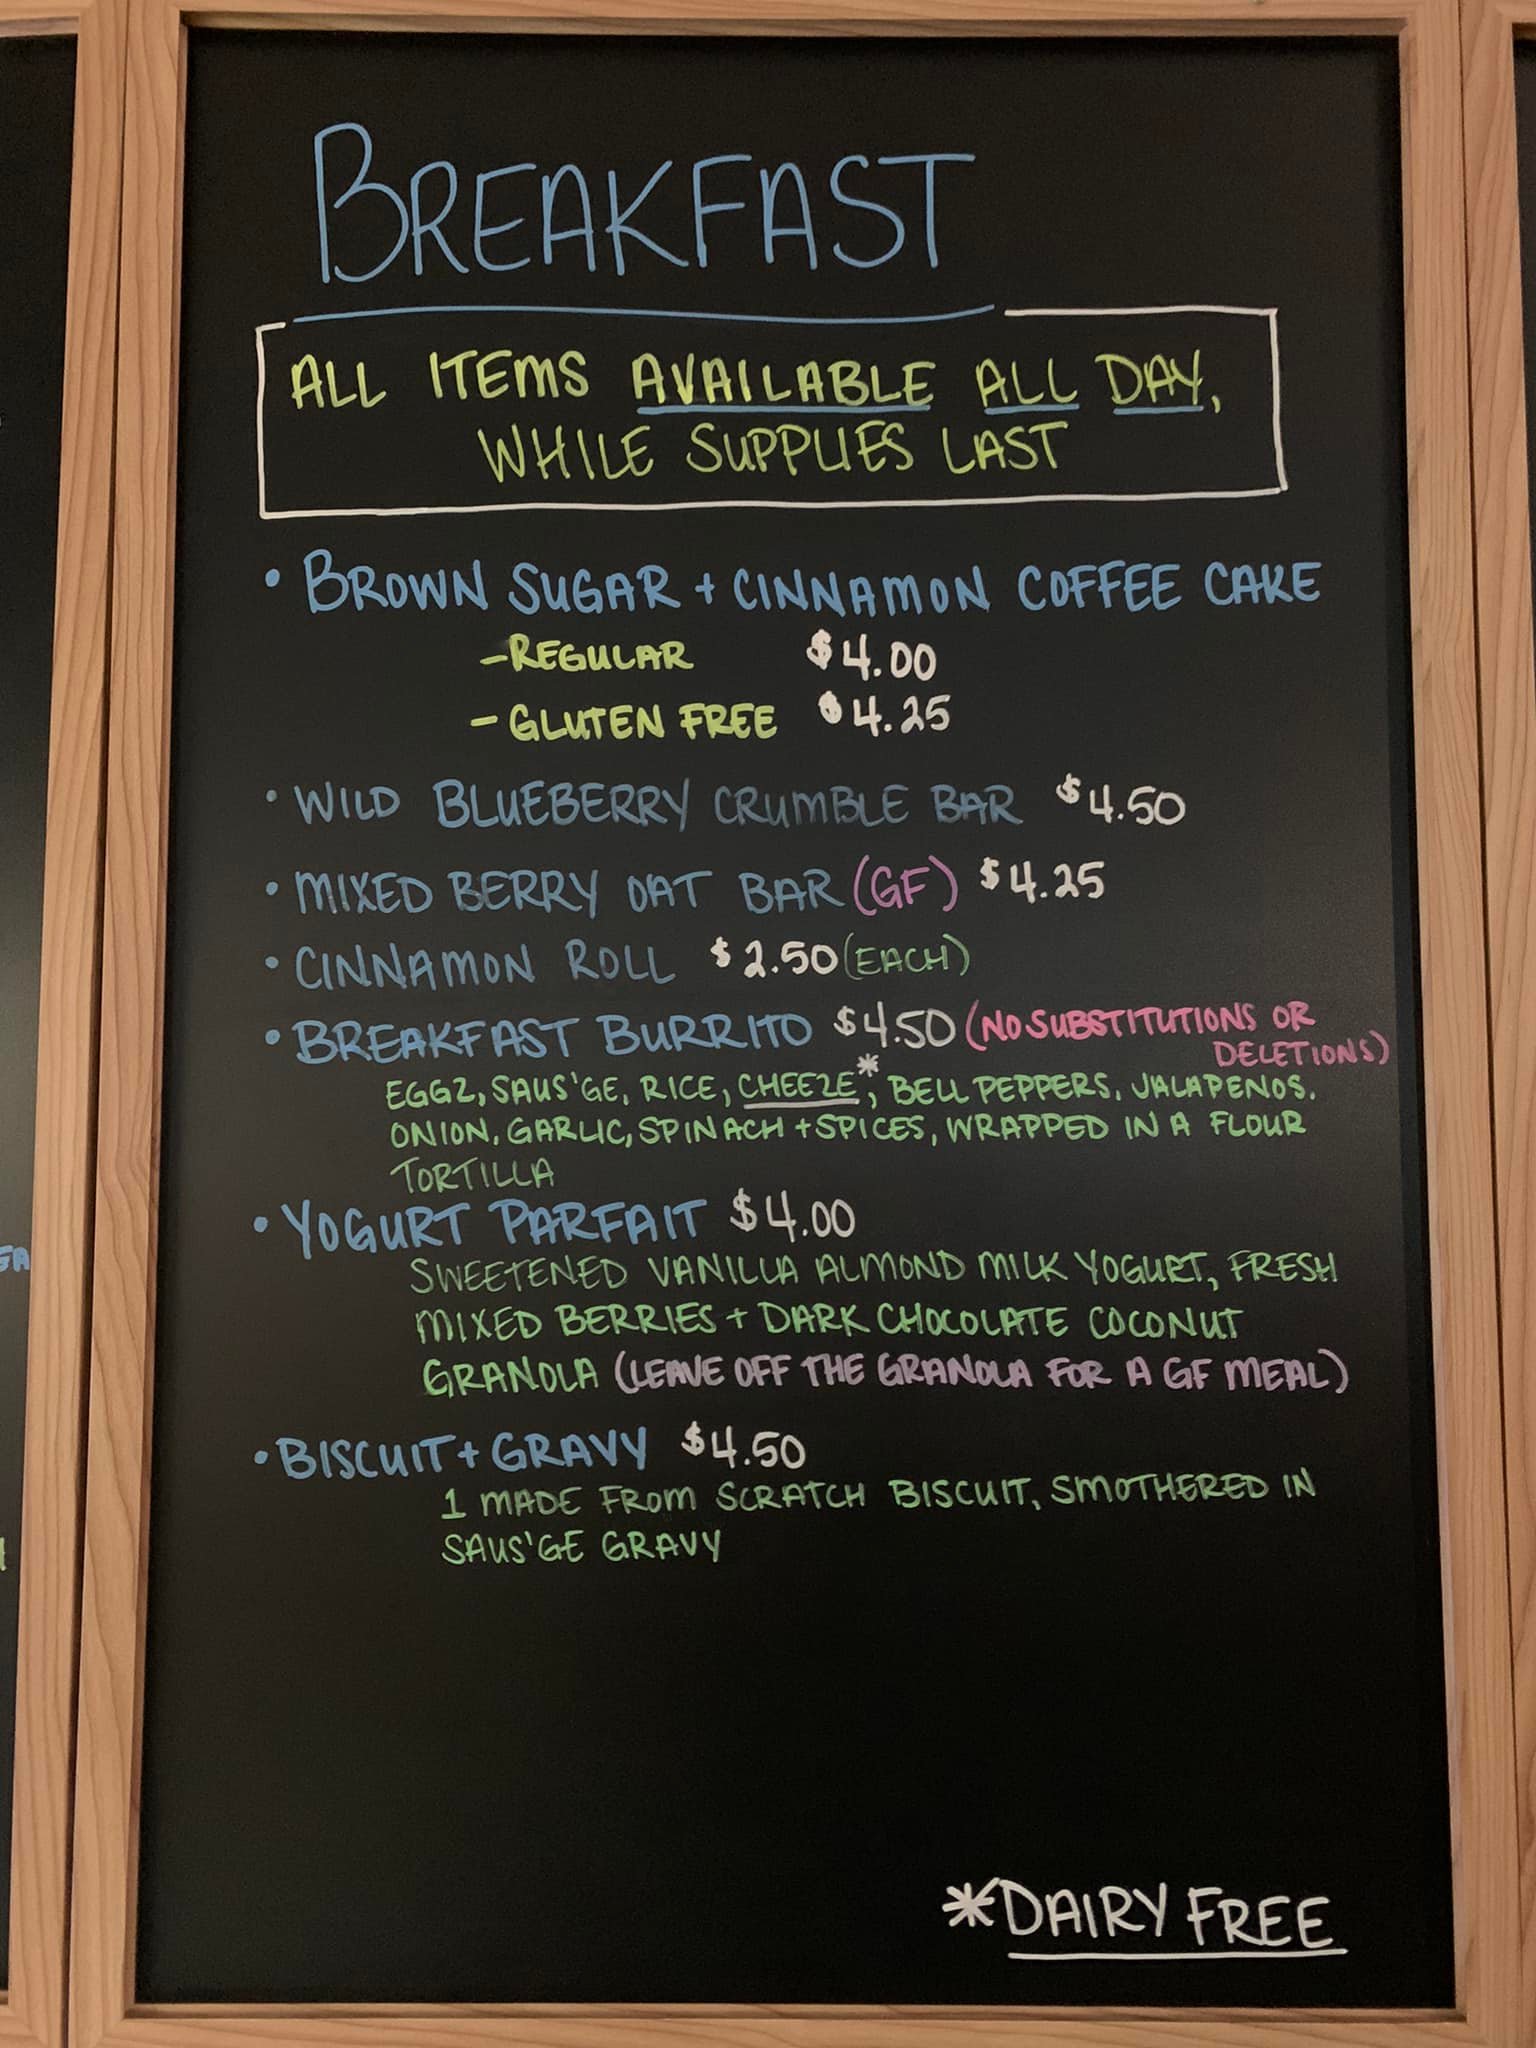 BREAKFAST
ALL ITEMS AVAILABLE ALL DAY,
WHILE SUPPLIES LAST
• BROWN SUGAR + CINNAMON COFFEE CAKE
- REGULAR $4.00
- GLUTEN FREE $4.25
• WILD BLUEBERRY CRUMBLE BAR $4.50
• MIXED BERRY OAT BAR (GF) $4.25
• CINNAMON ROLL $2.50 (EACH)
• BREAKFAST BURRITO $4.50 (NO SUBSTITUTIONS OR
DELETIONS)
EGGZ, SAUS'GE, RICE, CHEEZE*, BELL PEPPERS, JALAPENOS,
ONION, GARLIC, SPINACH + SPICES, WRAPPED IN A FLOUR
TORTILLA
• YOGURT PARFAIT $4.00
SWEETENED VANILLA ALMOND MILK YOGURT, FRESH
MIXED BERRIES + DARK CHOCOLATE COCONUT
GRANOLA (LEAVE OFF THE GRANOLA FOR A GF MEAL)
• BISCUIT + GRAVY $4.50
1 MADE FROM SCRATCH BISCUIT, SMOTHERED IN
SAUS'GE GRAVY
*DAIRY FREE